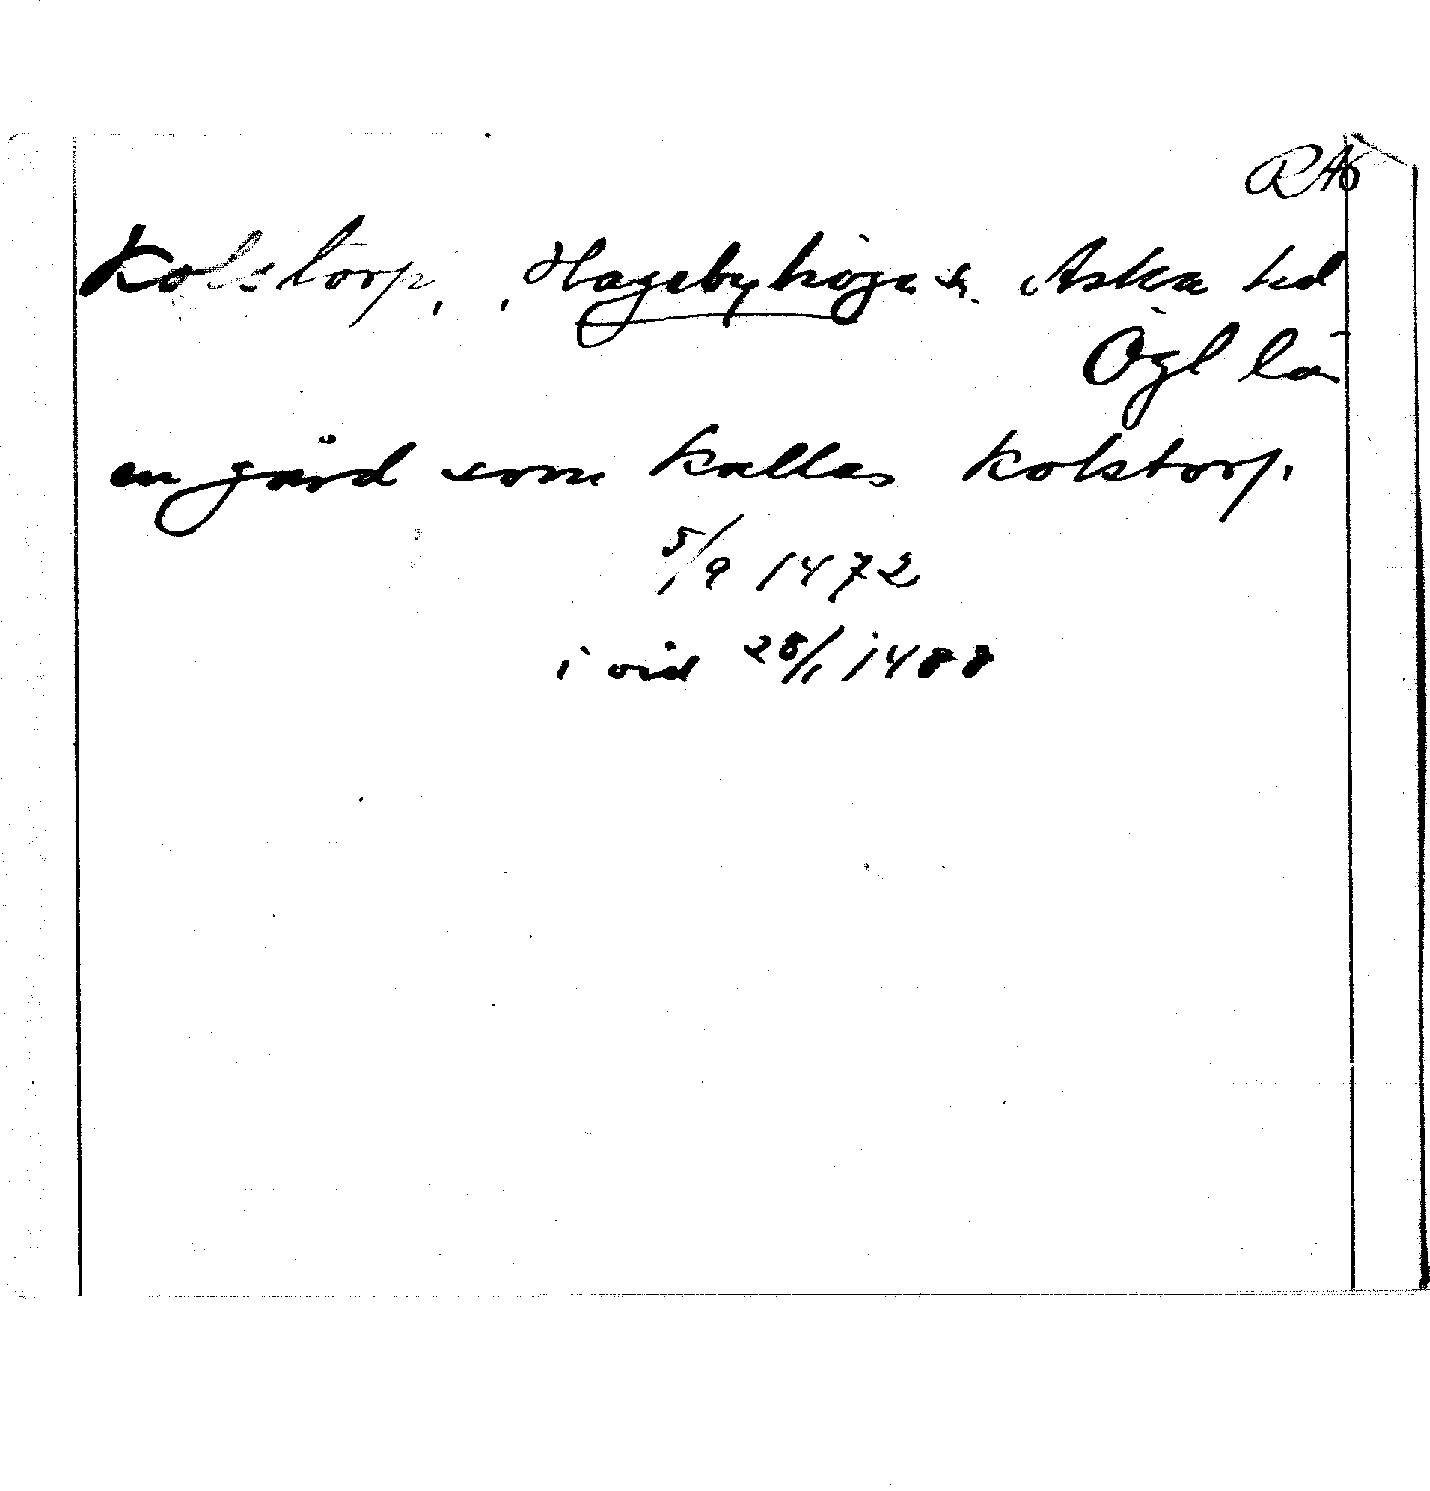 RAÖ
Kolstorp, Hagebyhöga s. Aska hd
Ögl län
en gård som kallas kolstorp.
5/9 1472
i vid 28/1 1488